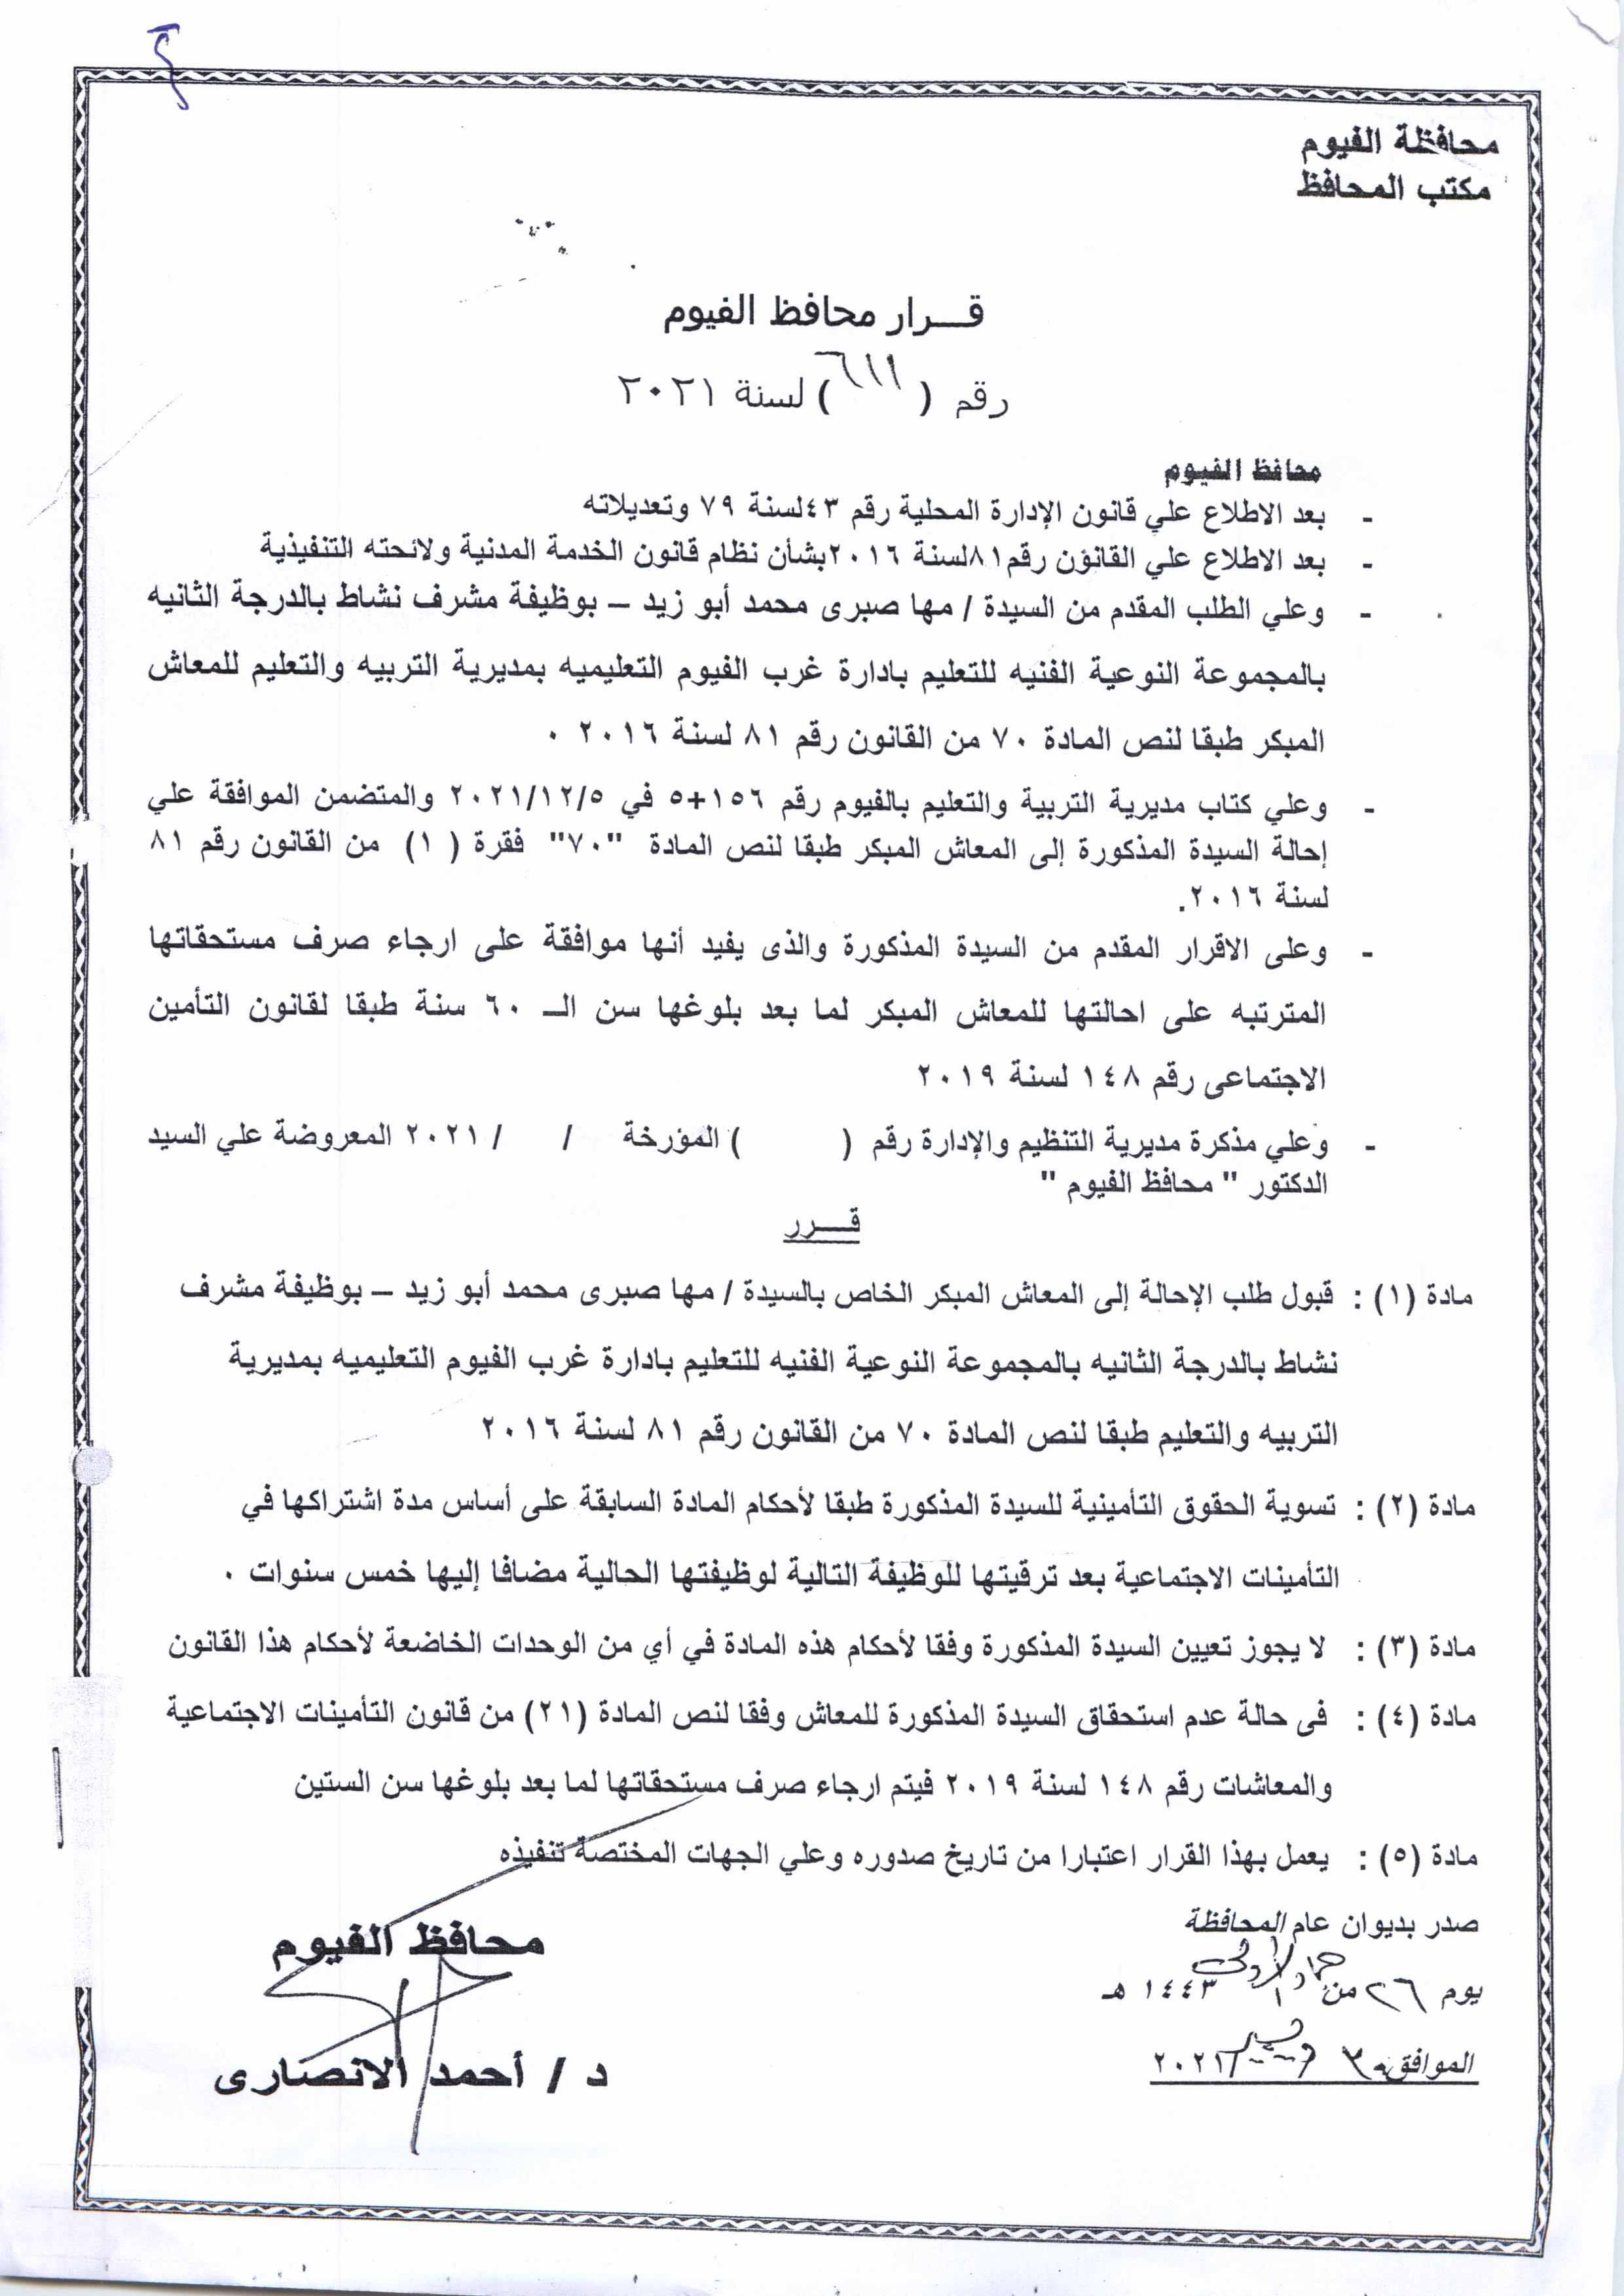 محافظة الفيوم
مكتب المحافظ
قـــرار محافظ الفيوم
رقم ( ٦١١ ) لسنة ٢٠٢١
محافظ الفيوم
- بعد الاطلاع علي قانون الإدارة المحلية رقم ٤٣لسنة ٧٩ وتعديلاته
- بعد الاطلاع علي القانؤن رقم٨١لسنة ٢٠١٦بشأن نظام قانون الخدمة المدنية ولائحته التنفيذية
- وعلي الطلب المقدم من السيدة / مها صبرى محمد أبو زيد – بوظيفة مشرف نشاط بالدرجة الثانيه
بالمجموعة النوعية الفنيه للتعليم بادارة غرب الفيوم التعليميه بمديرية التربيه والتعليم للمعاش
المبكر طبقا لنص المادة ٧٠ من القانون رقم ٨١ لسنة ٢٠١٦ .
- وعلي كتاب مديرية التربية والتعليم بالفيوم رقم ١٥٦+٥ في ٢٠٢١/١٢/٥ والمتضمن الموافقة علي
إحالة السيدة المذكورة إلى المعاش المبكر طبقا لنص المادة "٧٠" فقرة ( ١) من القانون رقم ٨١
لسنة ٢٠١٦.
- وعلى الاقرار المقدم من السيدة المذكورة والذى يفيد أنها موافقة على ارجاء صرف مستحقاتها
المترتبه على احالتها للمعاش المبكر لما بعد بلوغها سن الــ ٦٠ سنة طبقا لقانون التأمين
الاجتماعى رقم ١٤٨ لسنة ٢٠١٩
- وعلي مذكرة مديرية التنظيم والإدارة رقم ( ) المؤرخة / / ٢٠٢١ المعروضة علي السيد
الدكتور " محافظ الفيوم "
قـــرر
مادة (١) : قبول طلب الإحالة إلى المعاش المبكر الخاص بالسيدة / مها صبرى محمد أبو زيد – بوظيفة مشرف
نشاط بالدرجة الثانيه بالمجموعة النوعية الفنيه للتعليم بادارة غرب الفيوم التعليميه بمديرية
التربيه والتعليم طبقا لنص المادة ٧٠ من القانون رقم ٨١ لسنة ٢٠١٦
مادة (٢) : تسوية الحقوق التأمينية للسيدة المذكورة طبقا لأحكام المادة السابقة على أساس مدة اشتراكها في
التأمينات الاجتماعية بعد ترقيتها للوظيفة التالية لوظيفتها الحالية مضافا إليها خمس سنوات .
مادة (٣) : لا يجوز تعيين السيدة المذكورة وفقا لأحكام هذه المادة في أي من الوحدات الخاضعة لأحكام هذا القانون
مادة (٤) : فى حالة عدم استحقاق السيدة المذكورة للمعاش وفقا لنص المادة (٢١) من قانون التأمينات الاجتماعية
والمعاشات رقم ١٤٨ لسنة ٢٠١٩ فيتم ارجاء صرف مستحقاتها لما بعد بلوغها سن الستين
مادة (٥) : يعمل بهذا القرار اعتبارا من تاريخ صدوره وعلي الجهات المختصة تنفيذه
صدر بديوان عام المحافظة
محافظ الفيوم
يوم ٢٦ من جماد الأولى ١٤٤٣ هـ
الموافق ٣٠ ديسمبر ٢٠٢١
د / أحمد الانصارى